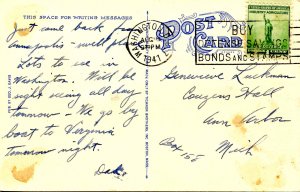 THIS SPACE FOR WRITING MESSAGES
POST
WASHINGTON
1941
BUY
SAVINGS
BONDS AND STAMPS
Just came back from
Annapolis - well
Lots to see in
Washington. Will be
sight seeing all day
tomorrow - We go by
boat to Virginia
tomorrow night.
Genevieve Luckman
Couzens Hall
Ann Arbor
Mich
Box 55